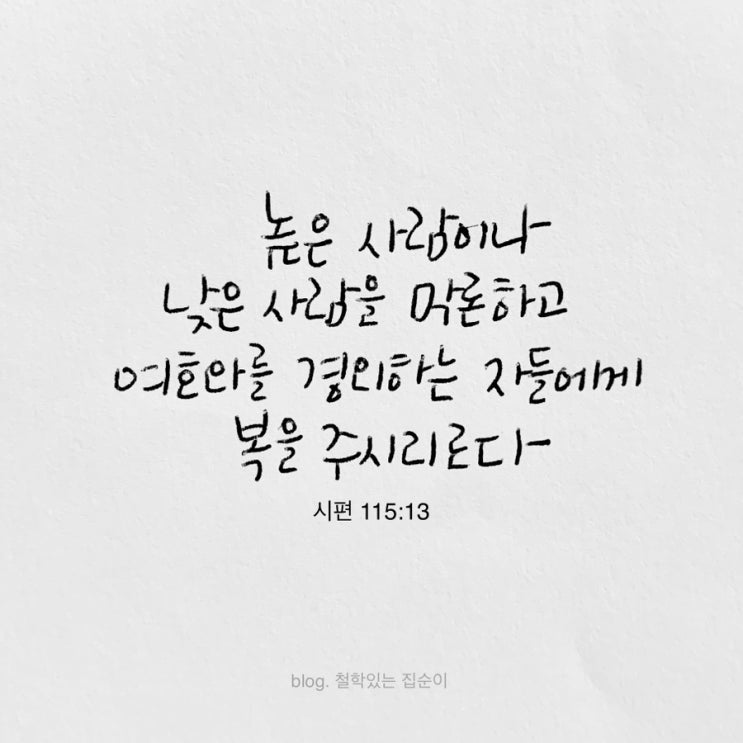 높은 사람이나
낮은 사람을 막론하고
여호와를 경외하는 자들에게
복을 주시리로다
시편 115:13
blog. 철학있는 집순이